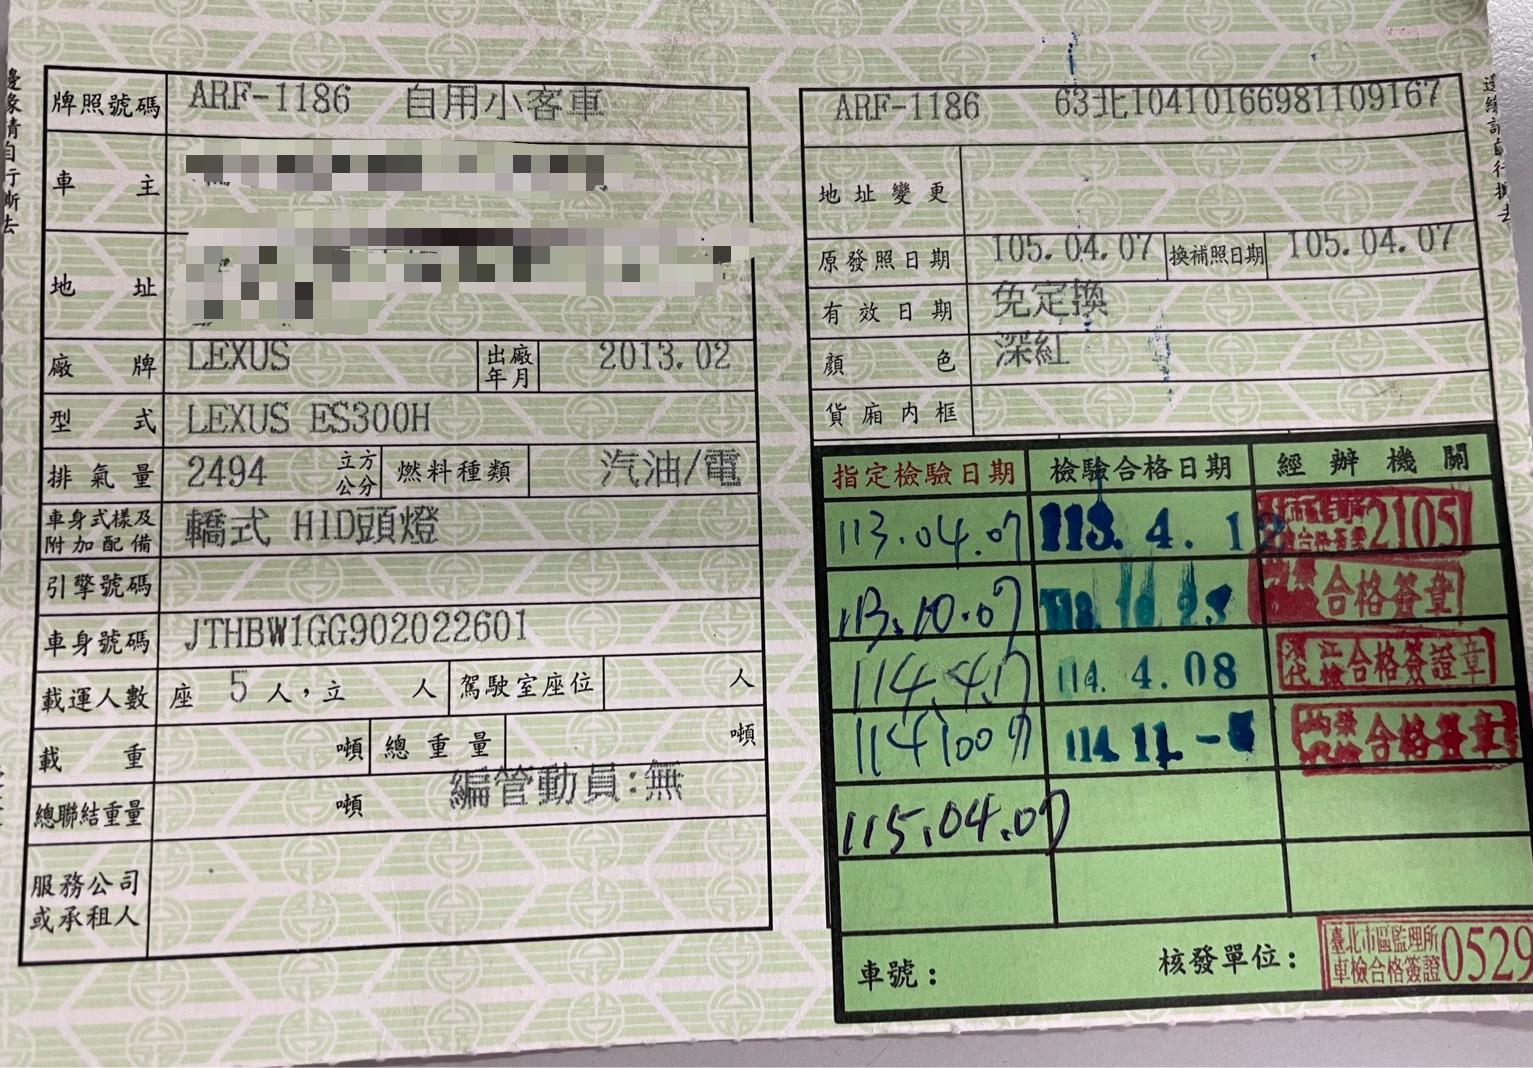 牌照號碼 ARF-1186 自用小客車
車主
地址
廠牌 LEXUS 出廠年月 2013.02
型式 LEXUS ES300H
排氣量 2494 立方公分 燃料種類 汽油/電
車身式樣及附加配備 轎式 HID頭燈
引擎號碼
車身號碼 JTHBW1GG902022601
載運人數 座 5 人，立 人 駕駛室座位 人
載重 噸 總重量 噸
總聯結重量 噸 編管動員:無
服務公司或承租人
ARF-1186 63北10410166981109167
地址變更
原發照日期 105.04.07 換補照日期 105.04.07
有效日期 免定換
顏色 深紅
貨廂內框
指定檢驗日期 檢驗合格日期 經辦機關
113.04.07 113.4.12 2105
113.10.07 合格簽章
114.4.7 114.4.08 合格簽證章
114.11.- 合格簽章
115.04.07
車號： 核發單位： 臺北市區監理所 車檢合格簽證 0529
邊緣請自行撕去